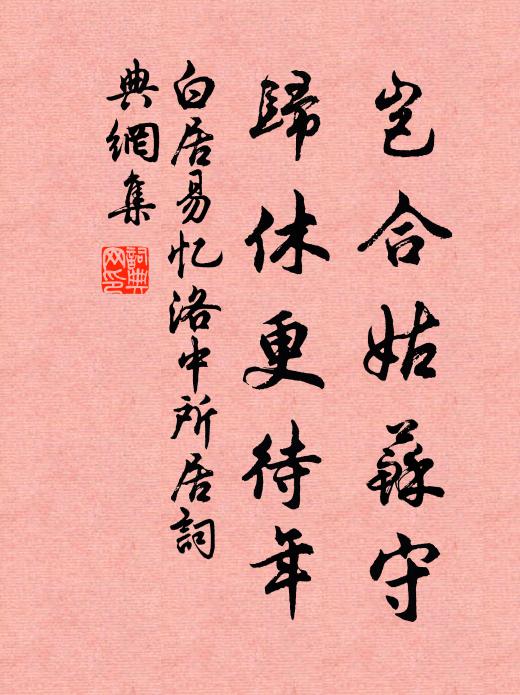 岂合姑蘇守
歸休更待年
白居易忆洛中所居詞
典網集
詞典
网印